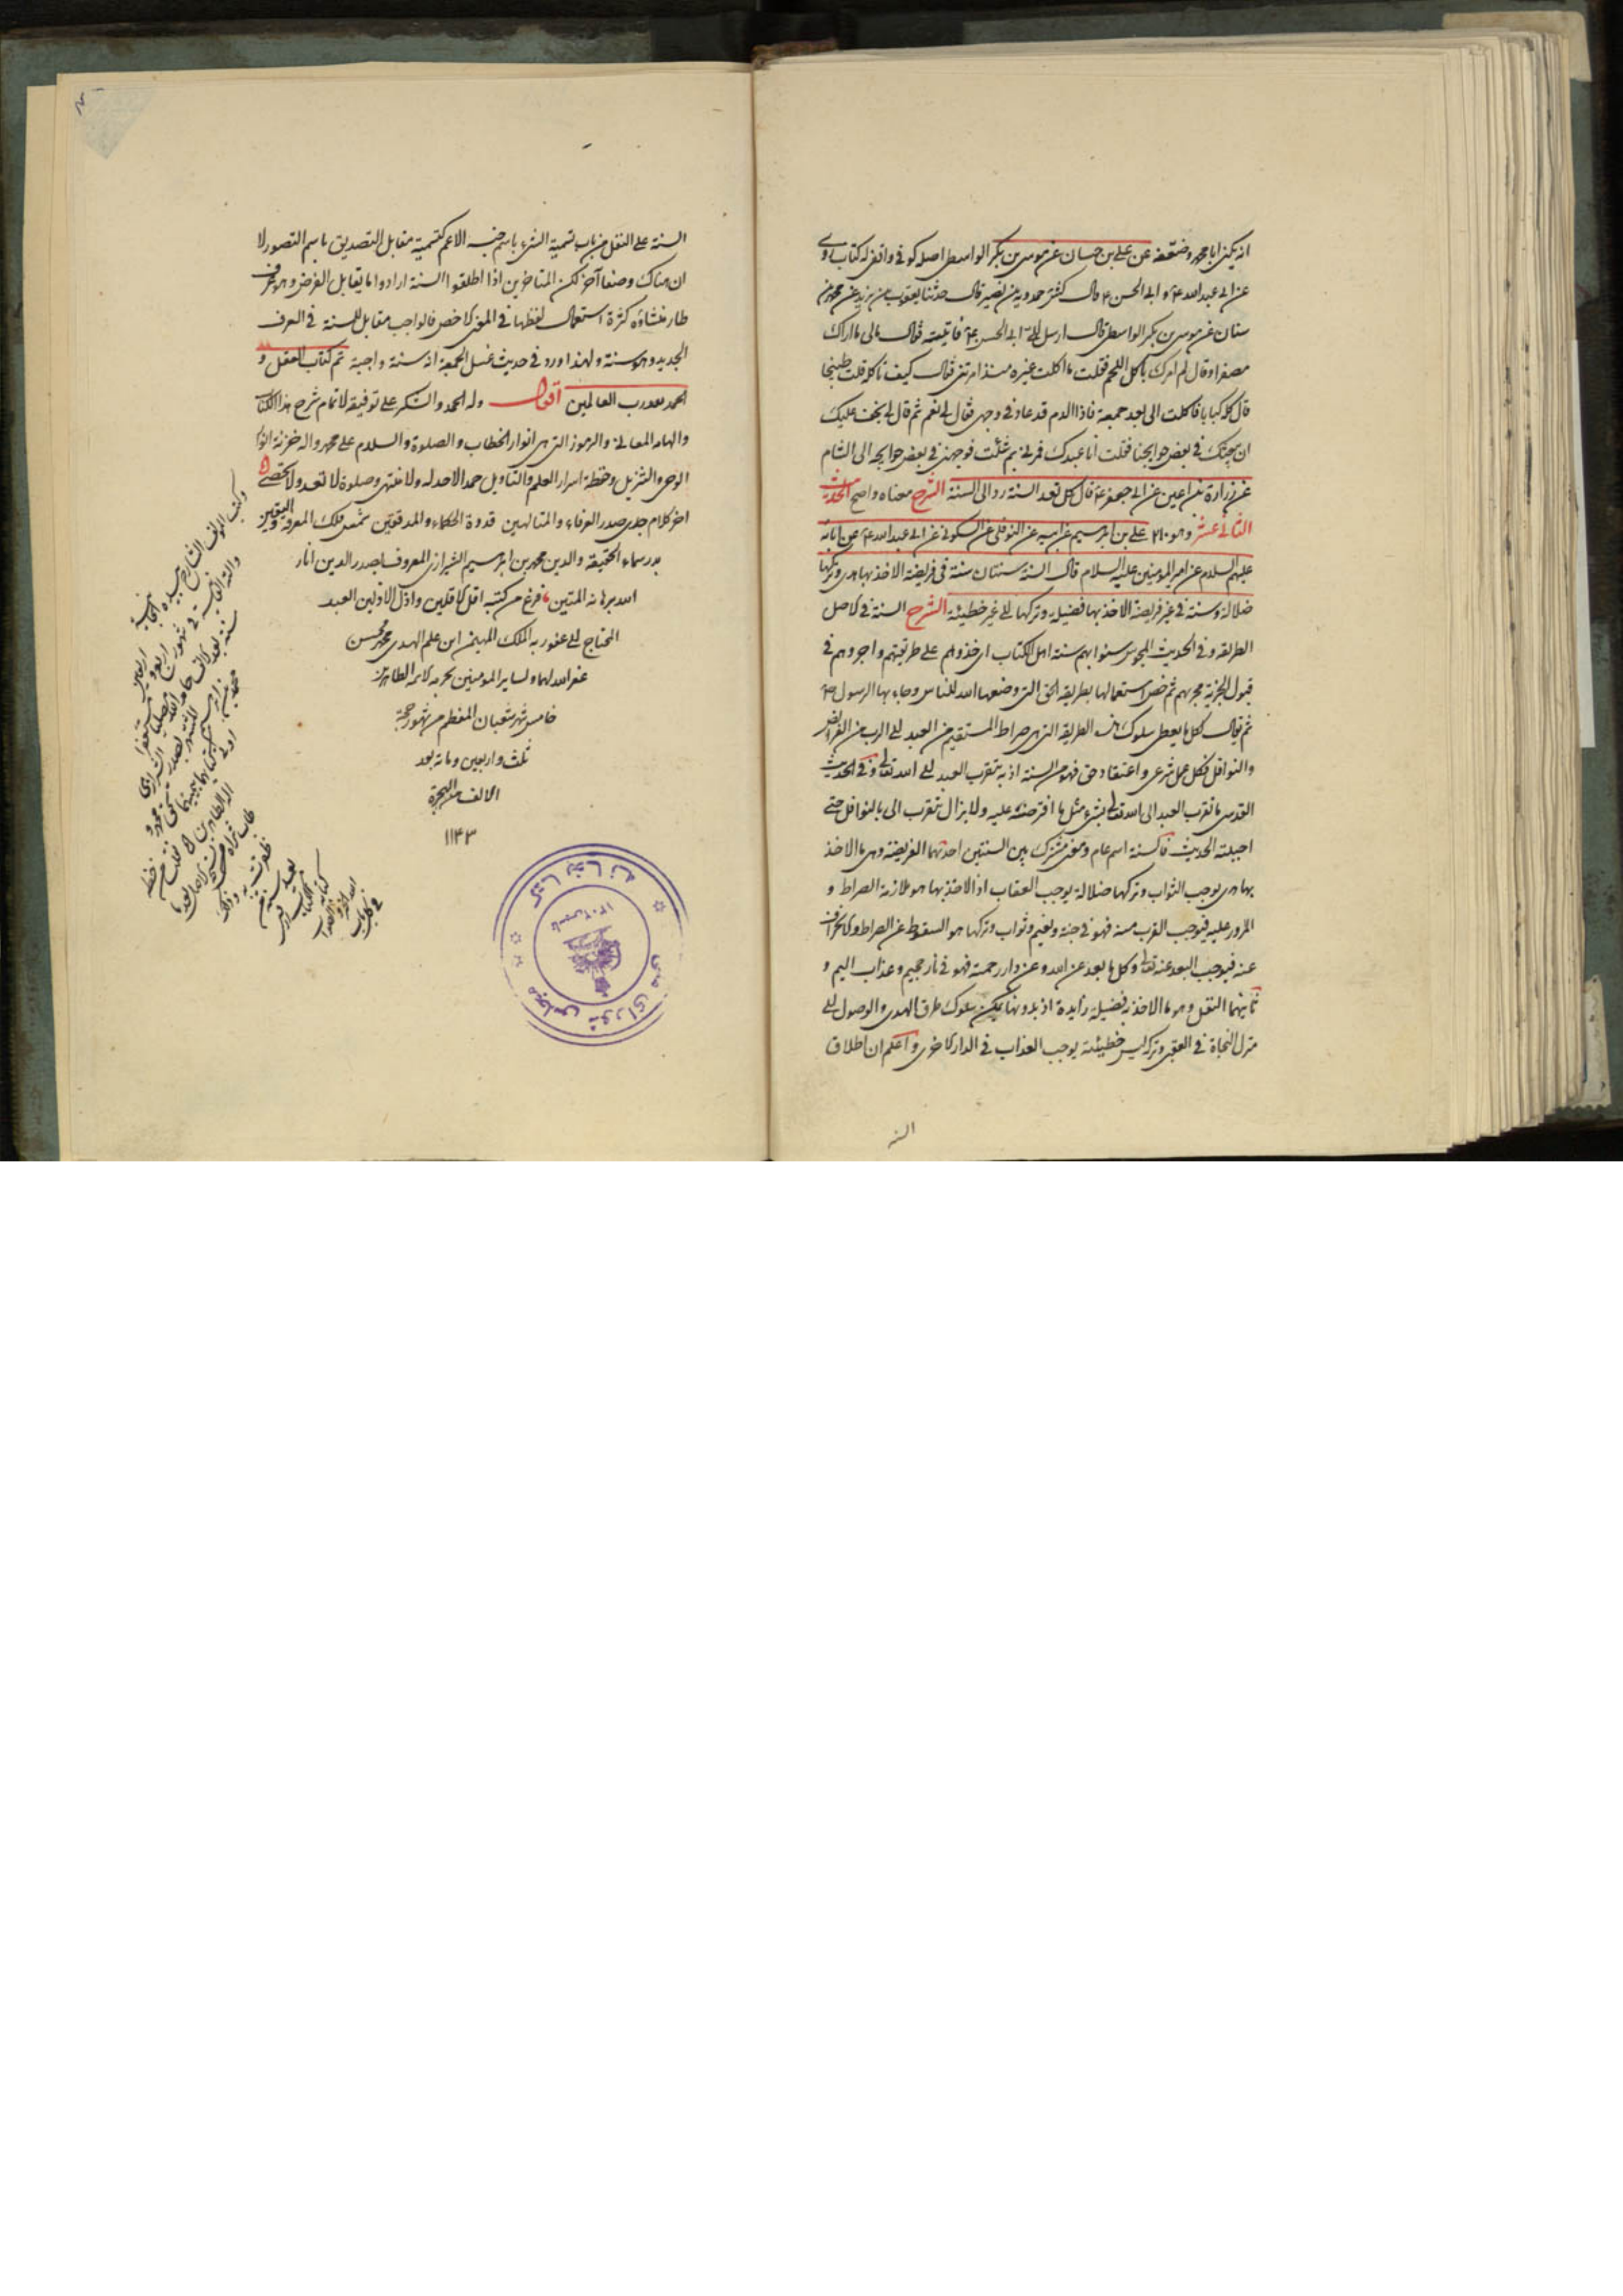 انه يكنى ابا محمد وضعفه عن على بن حسان عن موسى بن بكر الواسطى اصله كوفى واقفى له كتاب روى
عن ابى عبد الله ع و ابى الحسن ع قال كشى حمدويه بن نصير قال حدثنا يعقوب بن يزيد عن محمد بن
سنان عن موسى بن بكر الواسطى قال ارسل الى ابو الحسن ع فاتيته فقال مالى اراك
مصفرا وقال الم آمرك باكل اللحم فقلت ما اكلت غيره منذ امرتنى فقال كيف تاكله قلت طبيخا
قال كله كبابا فاكلت الى بعد جمعة فاذا الدم قد عاد فى وجهى فقال لى نعم ثم قال لى يخف عليك
ان نبعثك فى بعض حوايجنا فقلت انا عبدك فمرنى بم شئت فوجهنى فى بعض حوايجه الى الشام
عن زرارة بن اعين عن ابى جعفر ع قال كل تعد السنة رد الى السنة الشرح معناه واضح الحديث
الثانى عشر وهو ٢١٠ على بن ابرهيم عن ابيه عن النوفلى عن السكونى عن ابى عبد الله ع عن آبائه
عليهم السلام عن امير المؤمنين عليه السلام قال السنة سنتان سنة فى فريضة الاخذ بها هدى وتركها
ضلالة وسنة فى غير فريضة الاخذ بها فضيلة وتركها الى غير خطيئة الشرح السنة فى الاصل
الطريقة وفى الحديث المجوس سنوا بهم سنة اهل الكتاب اى خذوهم على طريقتهم واجروهم فى
قبول الجزية مجريهم ثم خص استعمالها بطريقة الحق التى وضعها الله للناس وجاء بها الرسول ص
ثم يقال لكل ما يعطى سلوك هذه الطريقة التى هى صراط المستقيم من العبد الى الرب من الفرائض
والنوافل فكل عمل شرعى واعتقاد حق فهو من السنة اذ به يتقرب العبد الى الله تعالى وفى الحديث
القدسى ما تقرب العبد الى الله تعالى بشىء مثل ما افترضته عليه ولا يزال يتقرب الى بالنوافل حتى
احببته الحديث فالسنة اسم عام ومعنى مشترك بين السنتين احدهما الفريضة وهى ما الاخذ
بها هدى يوجب الثواب وتركها ضلالة يوجب العقاب اذ الاخذ بها هو ملازمة الصراط و
المرور عليه فيوجب القرب منه فهو فى جنة ونعيم وثواب وتركها هو السقوط عن الصراط والانحراف
عنه فيوجب البعد عنه تعالى وكل ما بعد عن الله وعن دار رحمته فهو فى نار جحيم وعذاب اليم و
ثانيهما النفل وهو ما الاخذ به فضيلة زايدة اذ بدونها يمكن سلوك طرق الهدى والوصول الى
منزل النجاة فى العقبى وتركه ليس خطيئة يوجب العذاب فى الدار الاخرى واعلم ان اطلاق
السنة
السنة على النفل من باب تسمية الشىء باسم جنسه الاعم كتسمية مقابل التصديق باسم التصور لا
ان هناك وصفا آخر لكن المتاخرين اذا اطلقوا السنة ارادوا ما يقابل الفرض وهو عرف
طار منشاؤه كثرة استعمال لفظها فى المعنى الاخص فالواجب مقابل للسنة فى العرف
الجديد وهو سنة ولهذا ورد فى حديث غسل الجمعة انه سنة واجبة تم كتاب العقل و
الحمد لله رب العالمين اقول وله الحمد والشكر على توفيقه لاتمام شرح هذا الكتاب
والهام المعانى والرموز التى هى انوار الخطاب والصلوة والسلام على محمد واله خزنة انوار
الوحى والتنزيل وحفظة اسرار العلم والتاويل حمدا لا حد له ولا منتهى وصلوة لا تعد ولا تحصى
اخر كلام جدى صدر العرفاء والمتالهين قدوة الحكماء والمدققين شمس فلك المعرفة واليقين
بدر سماء الحقيقة والدين محمد بن ابرهيم الشيرازى المعروف بصدر الدين انار
الله برهانه المتين فرغ من كتبه اقل الاقلين واذل الاذلين العبد
المحتاج الى عفو ربه الملك المهيمن ابن علم الهدى محمد محسن
غفر الله لهما ولساير المومنين بحرمة الائمة الطاهرين
خامس شهر شعبان المعظم من شهور حجة
ثلث واربعين ومائة بعد
الالف من الهجرة
١١٤٣
وكتب المؤلف الشارح بيده
كتابخانه
مجلس شوراى ملى